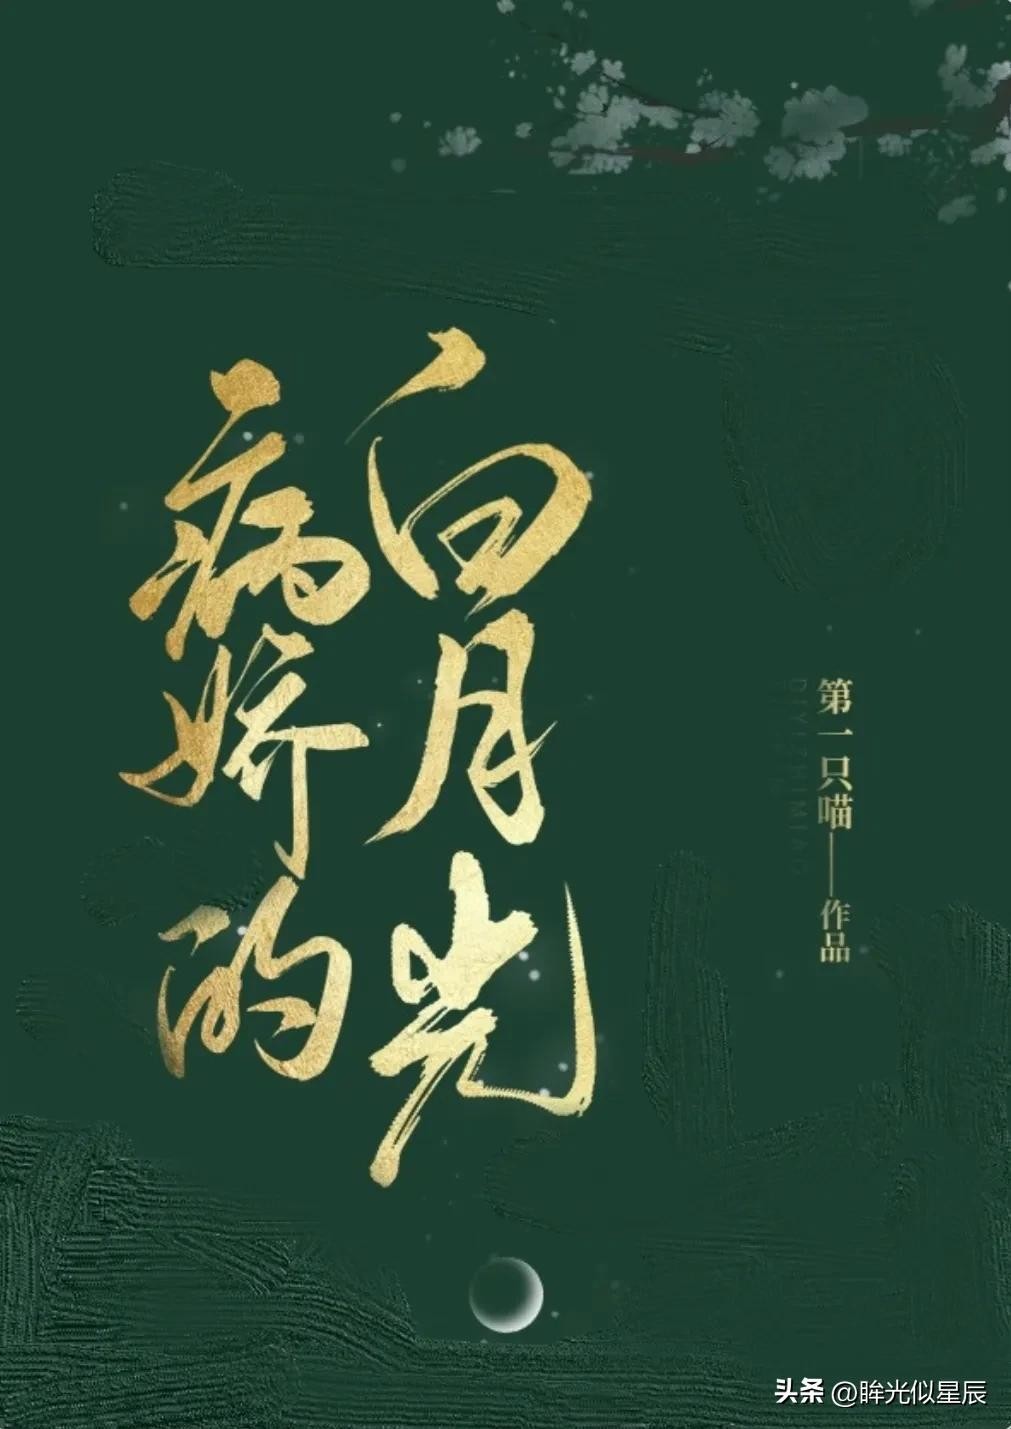 病娇的
白月光
第一只喵——作品
DIYIZHIMIAO
头条 @眸光似星辰